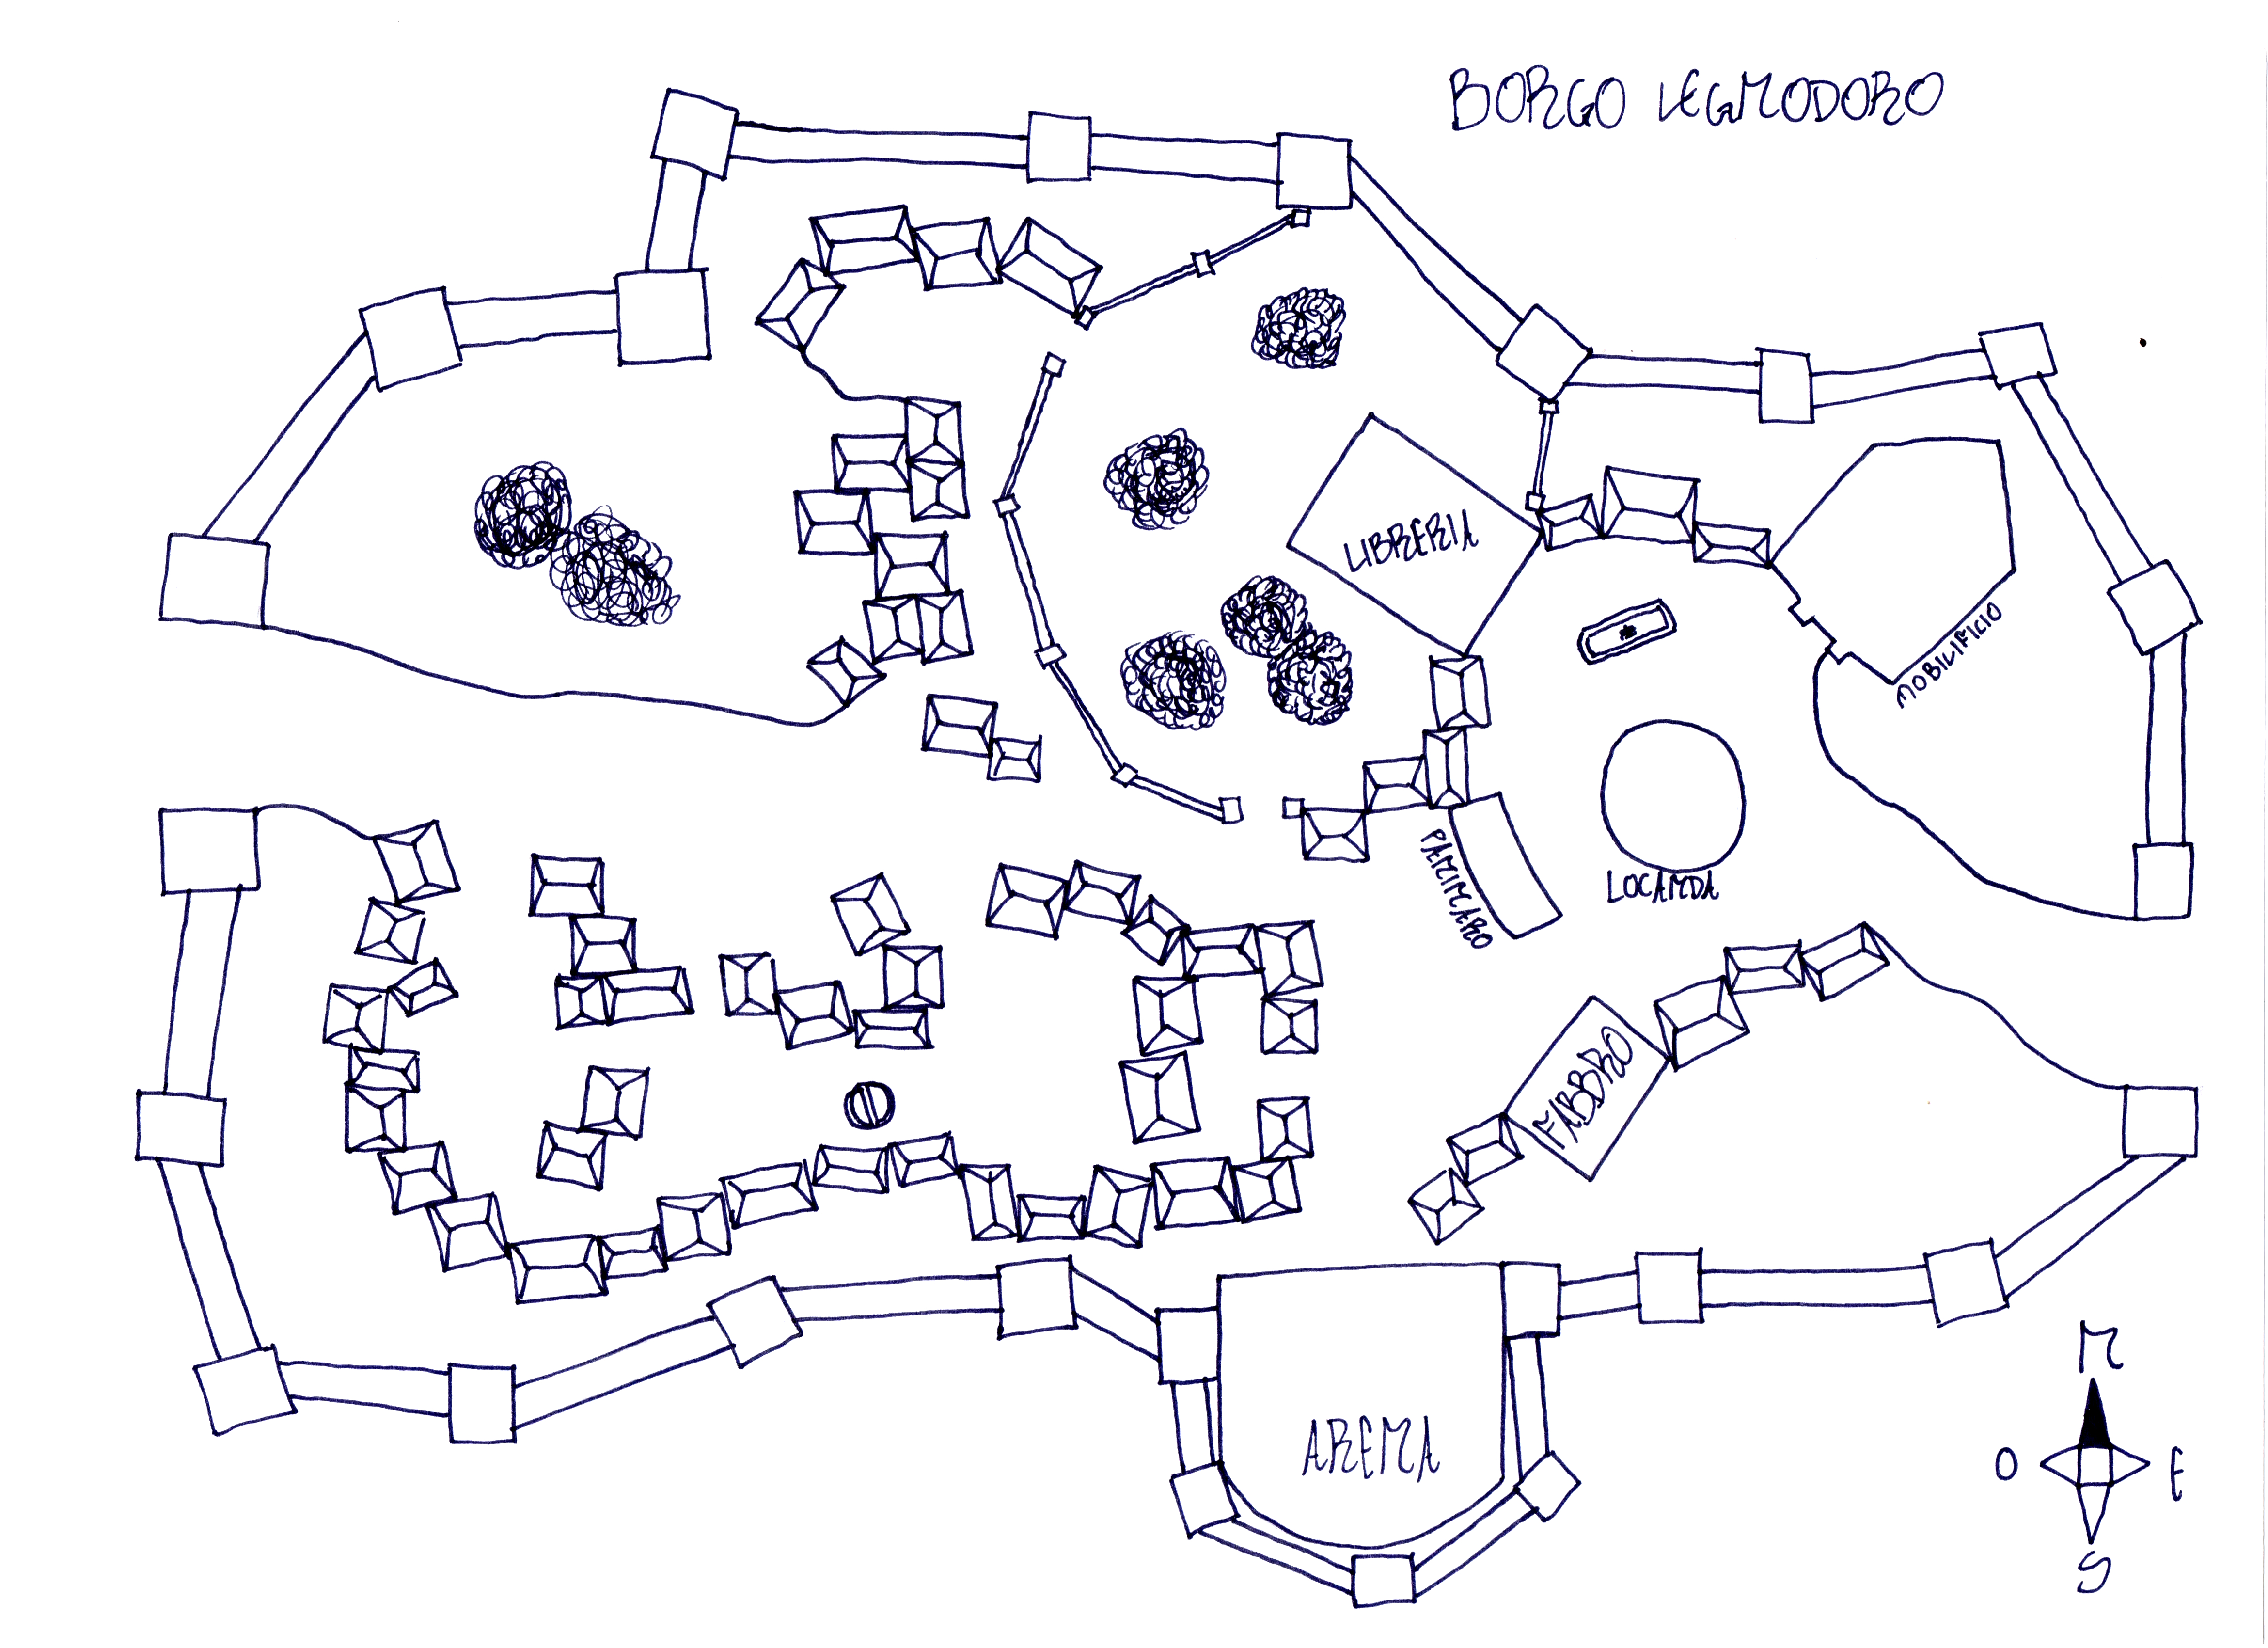 BORGO LEGNODORO
LIBRERIA
MOBILIFICIO
PANINARO
LOCANDA
FABBRO
ARENA
N
O
E
S